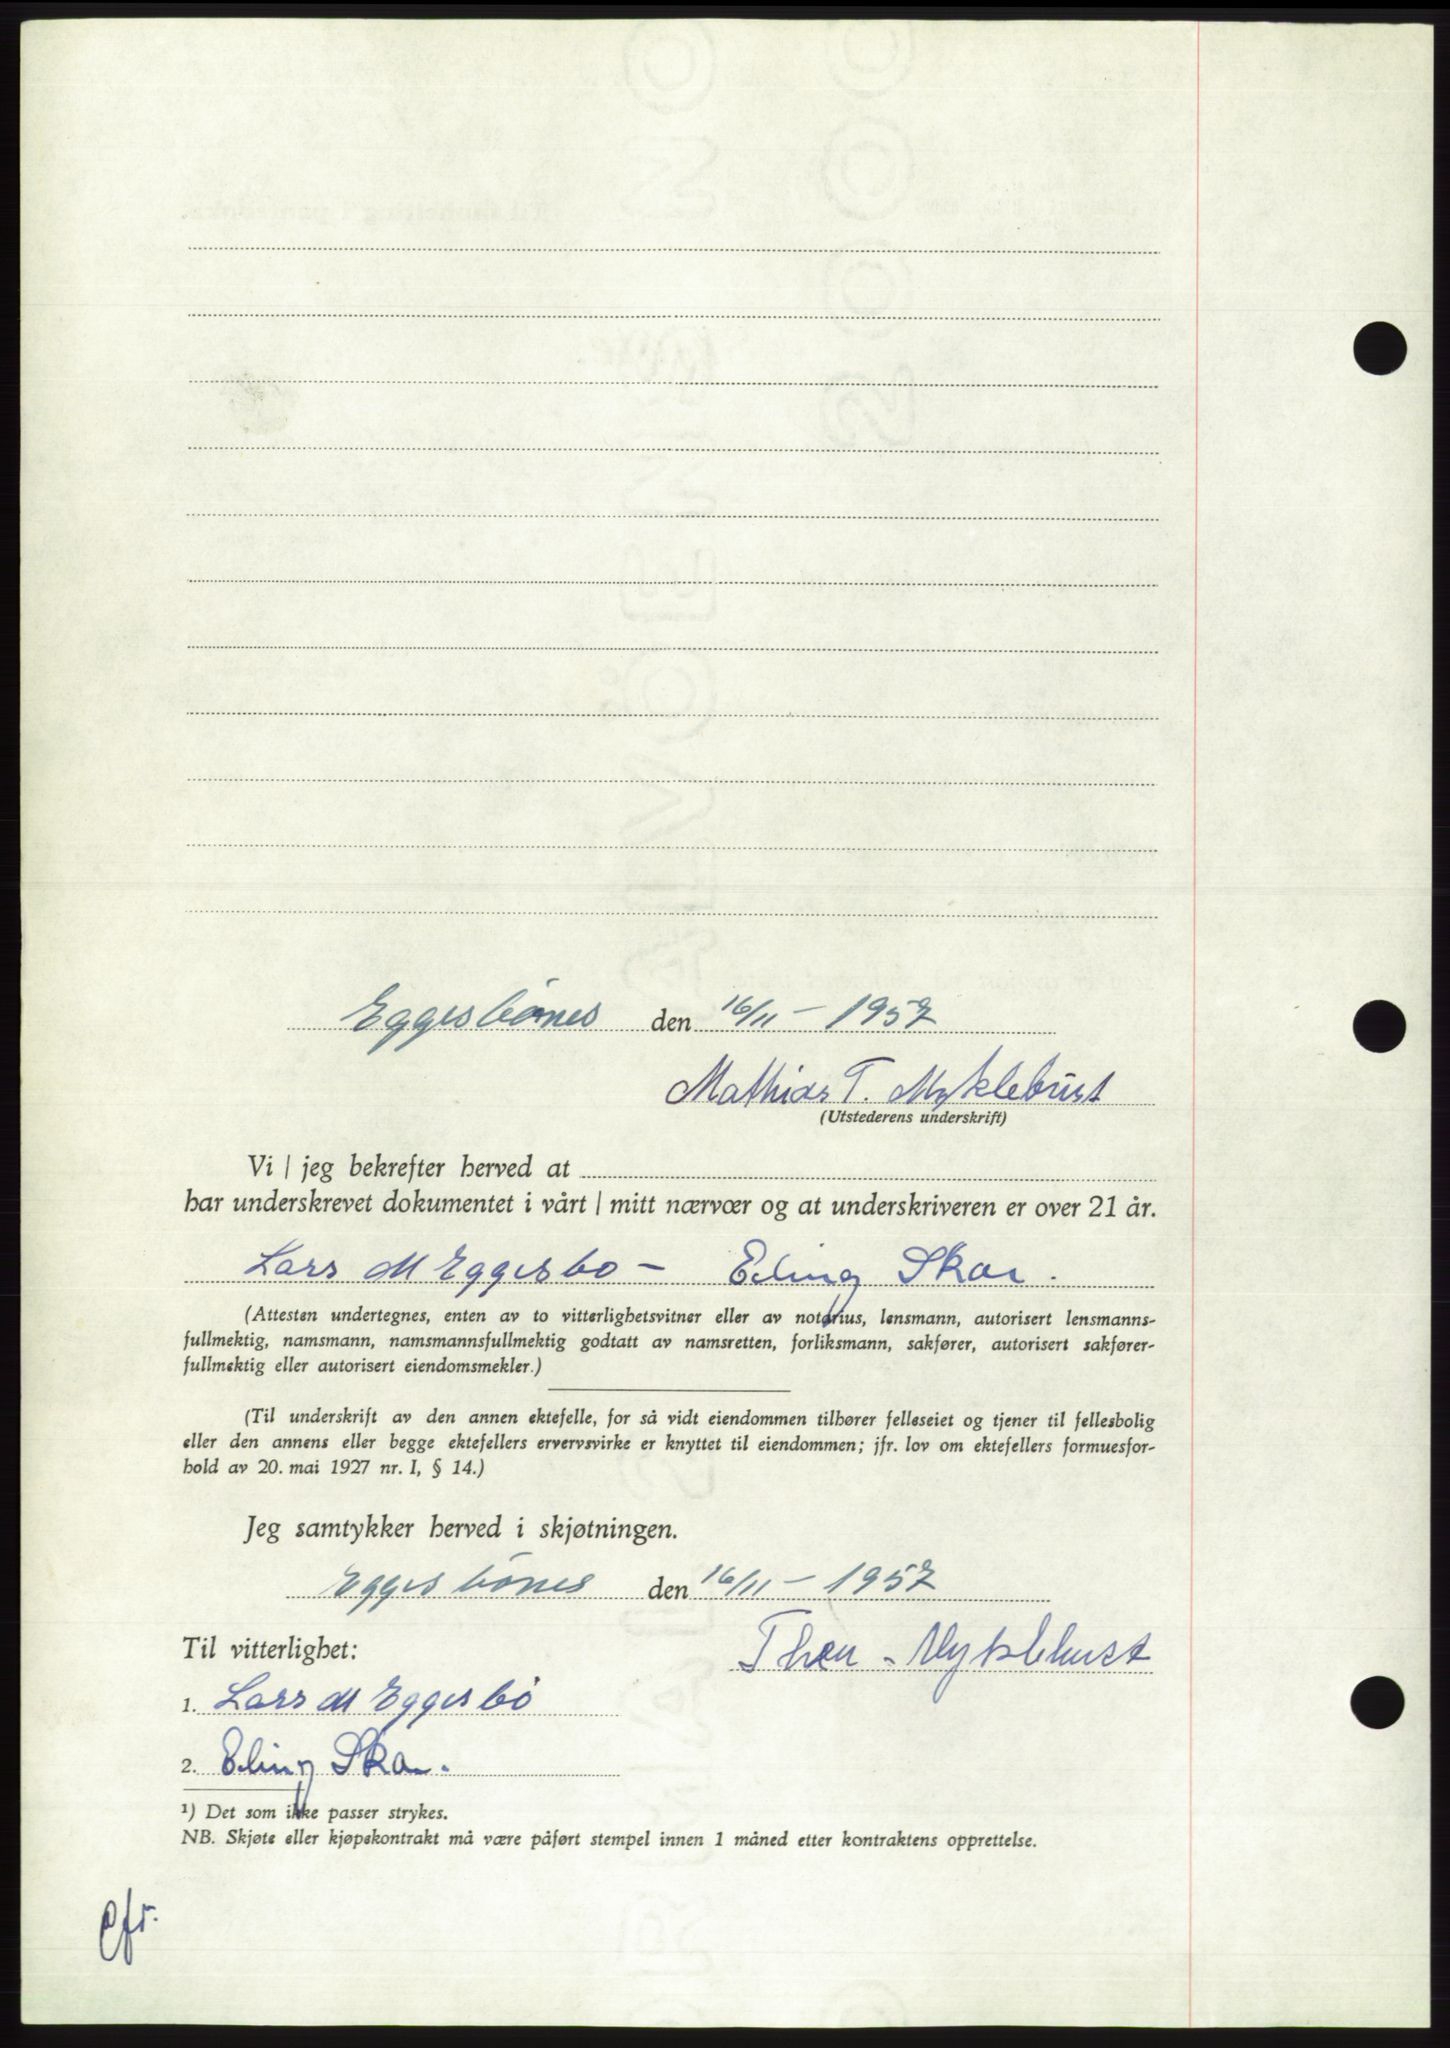 Eggesbönes den 16/11 – 1957
Mathias T. Myklebust
(Utstederens underskrift)
Vi | jeg bekrefter herved at
har underskrevet dokumentet i vårt | mitt nærvær og at underskriveren er over 21 år.
Lars M Eggesbo – Erling Skar.
(Attesten undertegnes, enten av to vitterlighetsvitner eller av notarius, lensmann, autorisert lensmanns-
fullmektig, namsmann, namsmannsfullmektig godtatt av namsretten, forliksmann, sakfører, autorisert sakfører-
fullmektig eller autorisert eiendomsmekler.)
(Til underskrift av den annen ektefelle, for så vidt eiendommen tilhører felleseiet og tjener til fellesbolig
eller den annens eller begge ektefellers ervervsvirke er knyttet til eiendommen; jfr. lov om ektefellers formuesfor-
hold av 20. mai 1927 nr. I, § 14.)
Jeg samtykker herved i skjøtningen.
Eggesbönes den 16/11 – 1957
Myklebust
Til vitterlighet:
1. Lars M Eggesbö
2. Erling Skar.
¹) Det som ikke passer strykes.
NB. Skjøte eller kjøpekontrakt må være påført stempel innen 1 måned etter kontraktens opprettelse.